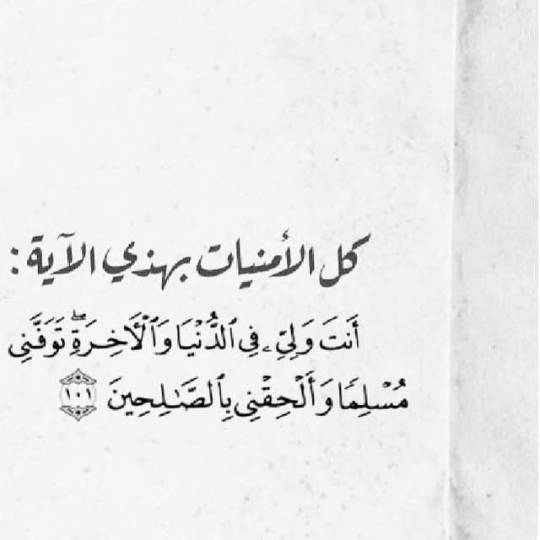 كل الأمنيات بهذي الآية :
أَنتَ وَلِيِّۦ فِى ٱلدُّنْيَا وَٱلْأَخِرَةِۖ تَوَفَّنِى
مُسْلِمًا وَأَلْحِقْنِى بِٱلصَّـٰلِحِينَ ١٠١